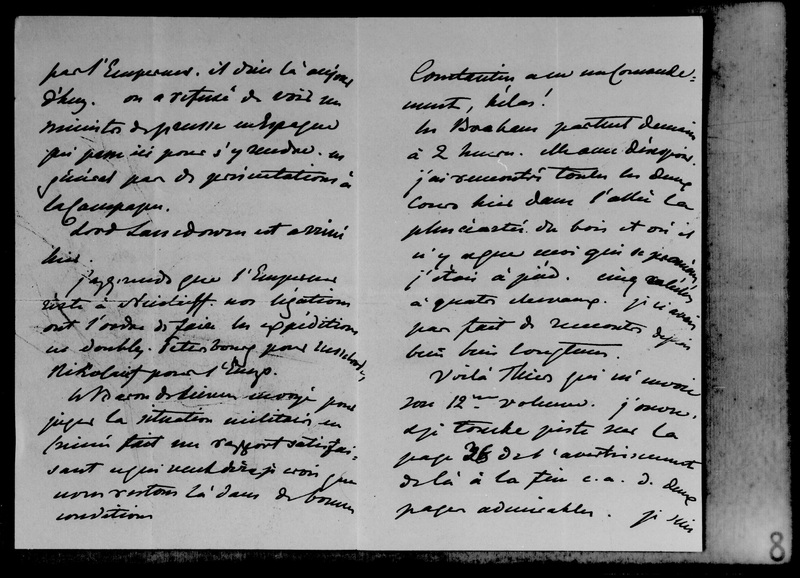 par l'Empereur. il dine là aujour
d'huy. on a refusé de voir un
ministre de prusse en Espagne
qui passe ici pour s'y rendre. en
général pas de présentations à
la Campagne.
Lord Lansedowne est arrivé
hier.
j'apprends que l'Empereur
reste à nos légations
ont l'ordre de faire les expéditions
en double. Petersbourg pour
pour l'Emp.
le Baron de envoyé pour
juger la situation militaire en
Crimée fait un rapport satisfai-
sant ce qui veut dire je crois que
nous restons là dans de bonnes
conditions
Constantin a eu un Commande-
ment, hélas!
les partent demain
à 2 heures.
j'ai rencontré toutes les deux
Cours hier dans l'allée la
plus écartée du bois et où il
n'y a que moi qui se promène
j'étais à pied. cinq calèches
à quatre chevaux. je n'avais
pas fait de rencontre depuis
bien bien longtems.
Voilà Thiers qui m'envoie
son 12me volume. j'ouvre,
et je tombe juste sur la
page 26 de l'avertissement
de là à la fin c.a.d. deux
pages admirables. je suis
8